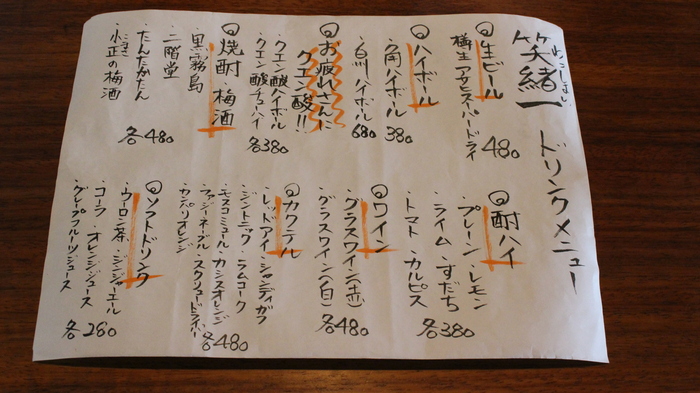 笑緒一 ドリンクメニュー
えこしょい
◎生ビール
樽生アサヒスーパードライ
480
◎ハイボール
角ハイボール 380
白州ハイボール 680
◎お疲れさんに
クエン酸!!
クエン酸ハイボール
クエン酸チューハイ
各380
◎焼酎・梅酒
黒霧島
二階堂
・たんたかたん
・小正の梅酒
各480
◎酎ハイ
プレーン・レモン
・ライム・すだち
・トマト・カルピス
各380
◎ワイン
・グラスワイン(赤)
・グラスワイン(白)
各480
◎カクテル
・レッドアイ・シャンディガフ
・ジントニック・ラムコーク
・モスコミュール・カシスオレンジ
・ファジーネーブル・スクリュードライバー
・カンパリオレンジ
各480
◎ソフトドリンク
・ウーロン茶・ジンジャーエール
・コーラ・オレンジジュース
・グレープフルーツジュース
各260